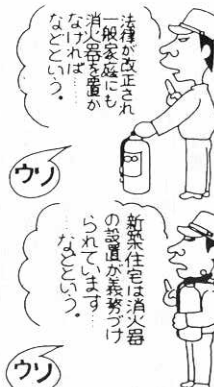 法律が改正され
一般家庭にも
消火器を置か
なければ……
などという。
ウソ
新築住宅は消火器
の設置が義務づけ
られています…
…などという。
ウソ